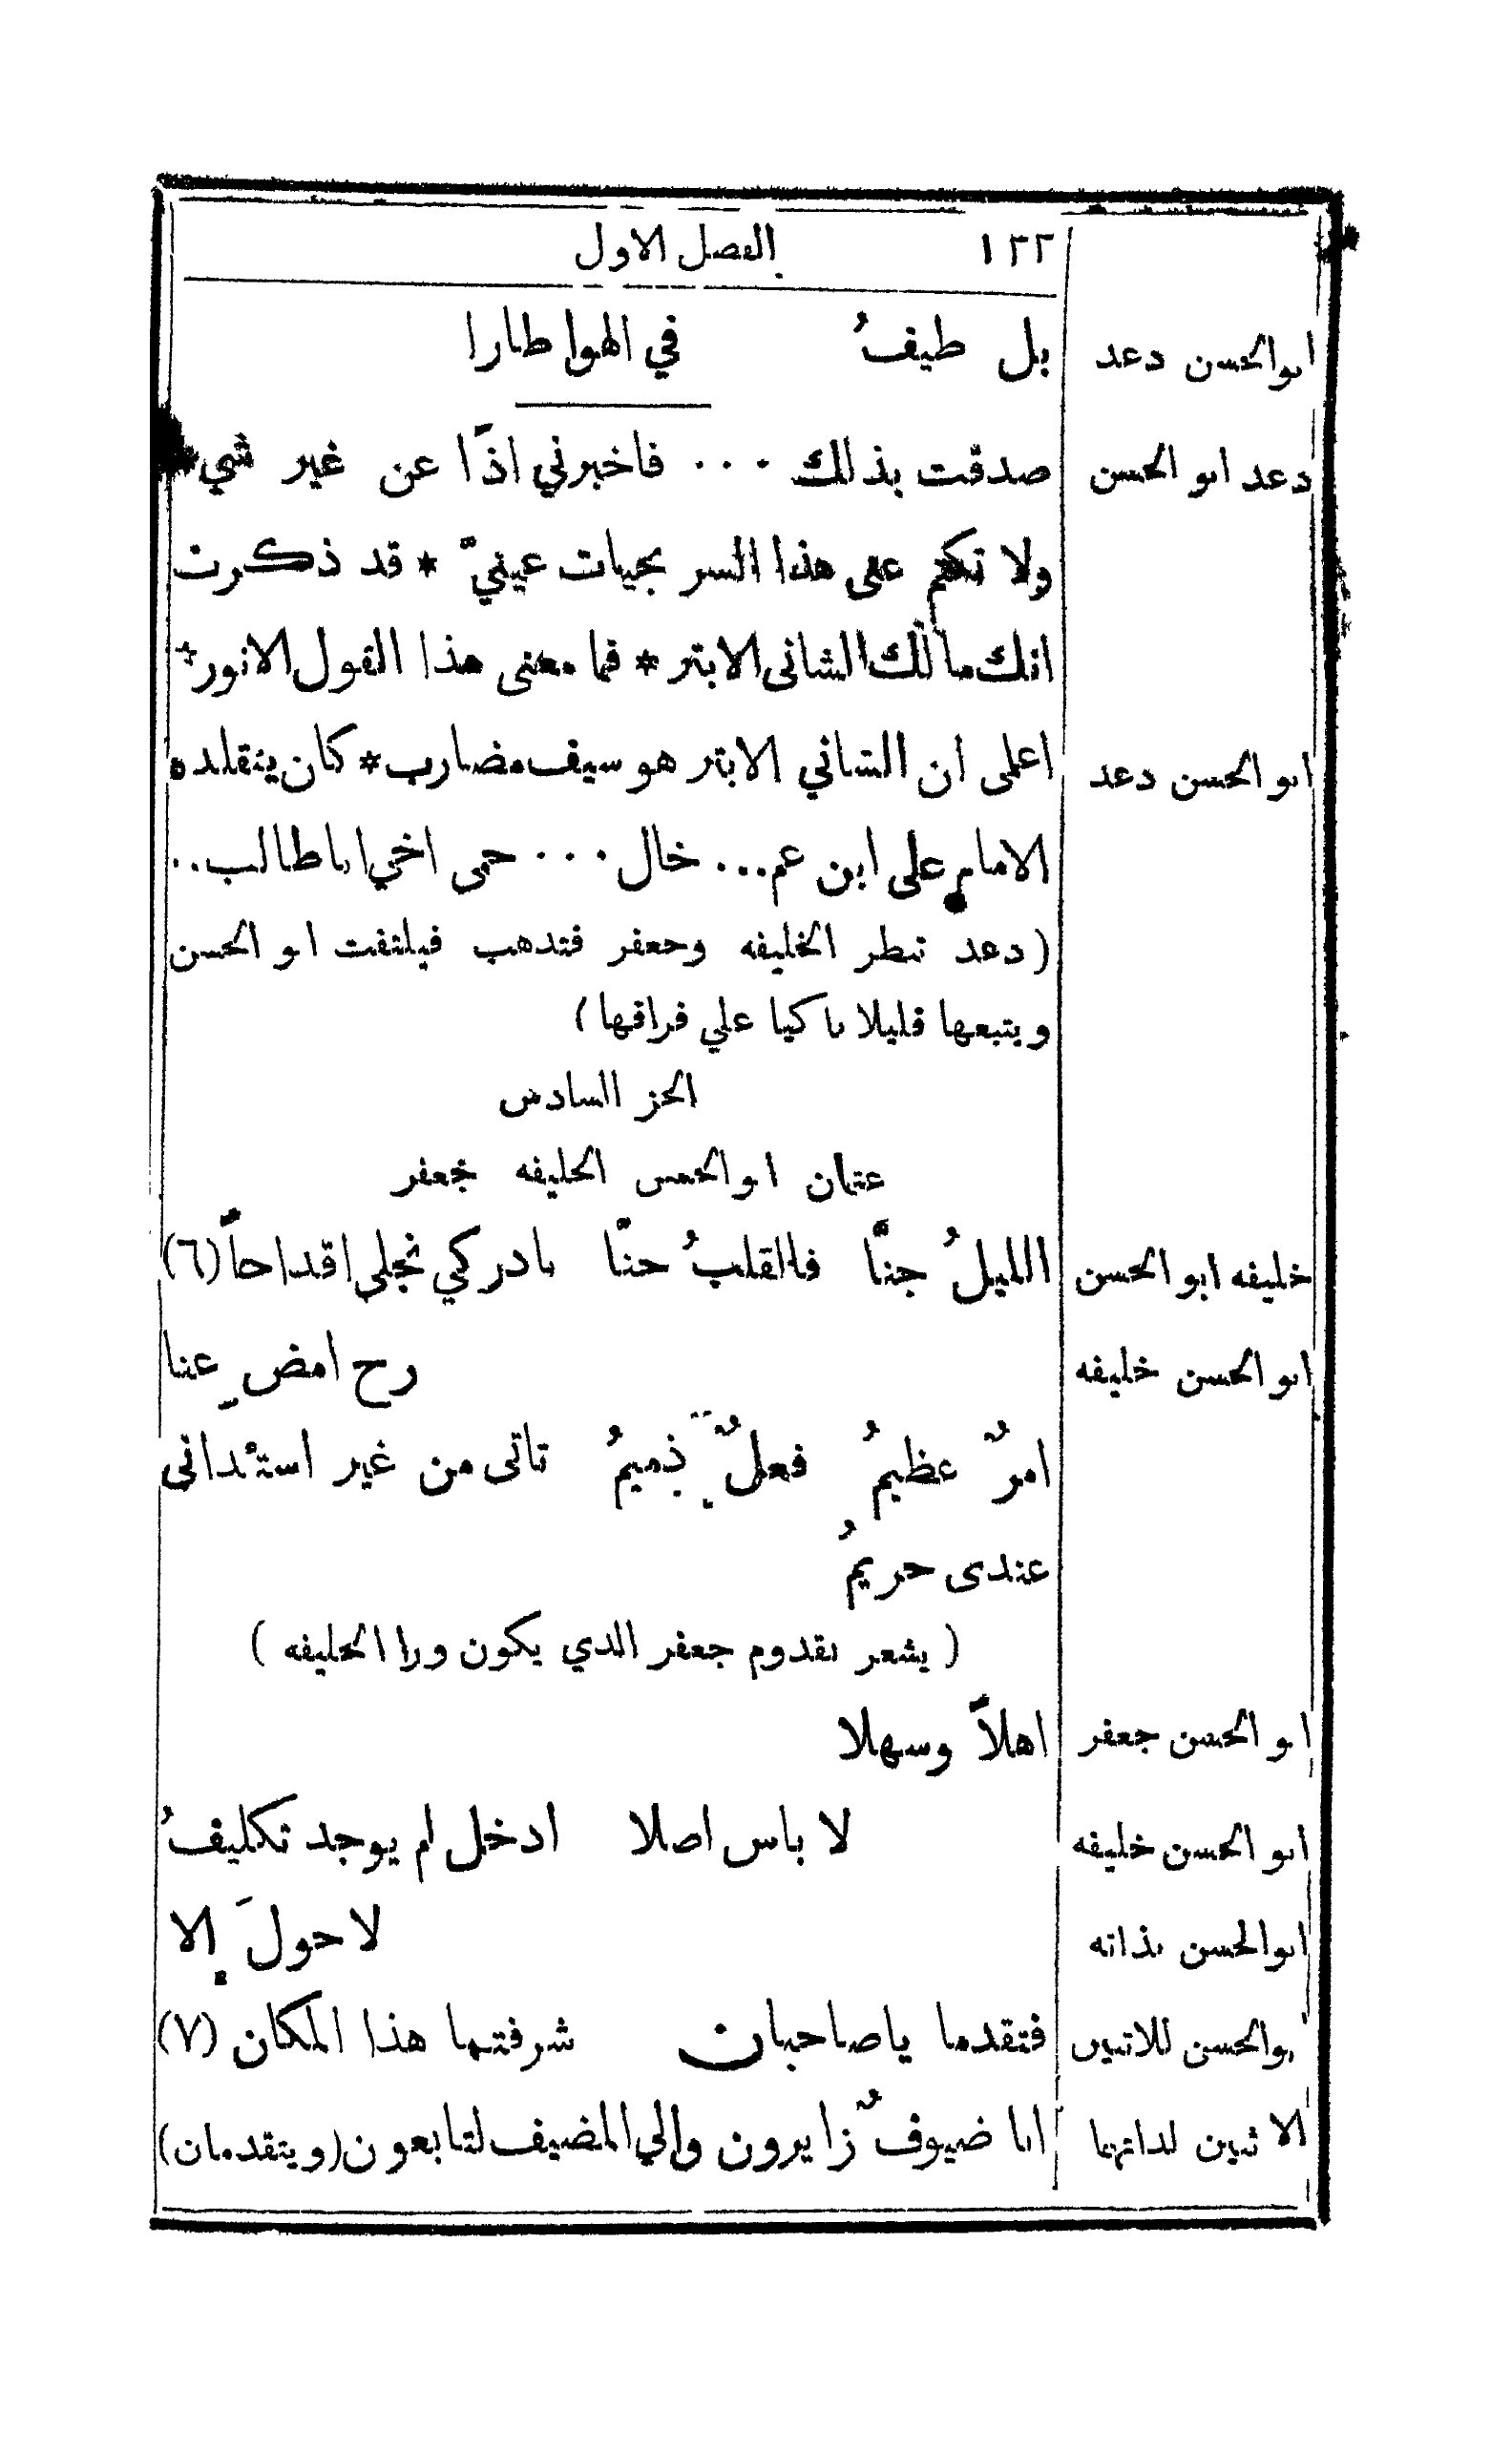 ١٣٢ الفصل الاول
ابوالحسن دعد بل طيفُ في الهوا طارا
دعد ابو الحسن صدقت بذلك ٠٠٠ فاخبرني اذًا عن غير شي*
ولا تكتم على هذا السر بحيات عينيّ * قد ذكرت
انك مالك الشانى الابتر * فما معنى هذا القول الانور*
ابو الحسن دعد اعلمى ان الشاني الابتر هو سيف مضارب* كان يتقلده
الامام على ابن عم... خال ٠٠٠ حمى اخي ابا طالب..
(دعد تنظر الخليفه وجعفر فتدهب فيلتفت ابو الحسن
ويتبعها قليلا باكيا علي فراقها)
الجز السادس
عتمان ابو الحسن الخليفه جعفر
خليفه ابو الحسن الليلُ جنّا فاالقلبُ حنّا بادركي نجلى اقداحاً (٦)
ابو الحسن خليفه رح امضِ عنا
امرٌ عظيمُ فعلٌ ذميمُ تاتى من غير استئدانى
عندى حريمُ
( يشعر بقدوم جعفر الدي يكون ورا الخليفه )
ابو الحسن جعفر اهلاً وسهلا
ابو الحسن خليفه لا باس اصلا ادخل لم يوجد تكليفُ
ابوالحسن بذاته لاحولَ إلا
ابوالحسن للاتنين فتقدما ياصاحبان شرفتما هذا المكان (٧)
الاثنين لداتهما انا ضيوفٌ زايرون والي المضيف لتابعون (ويتقدمان)